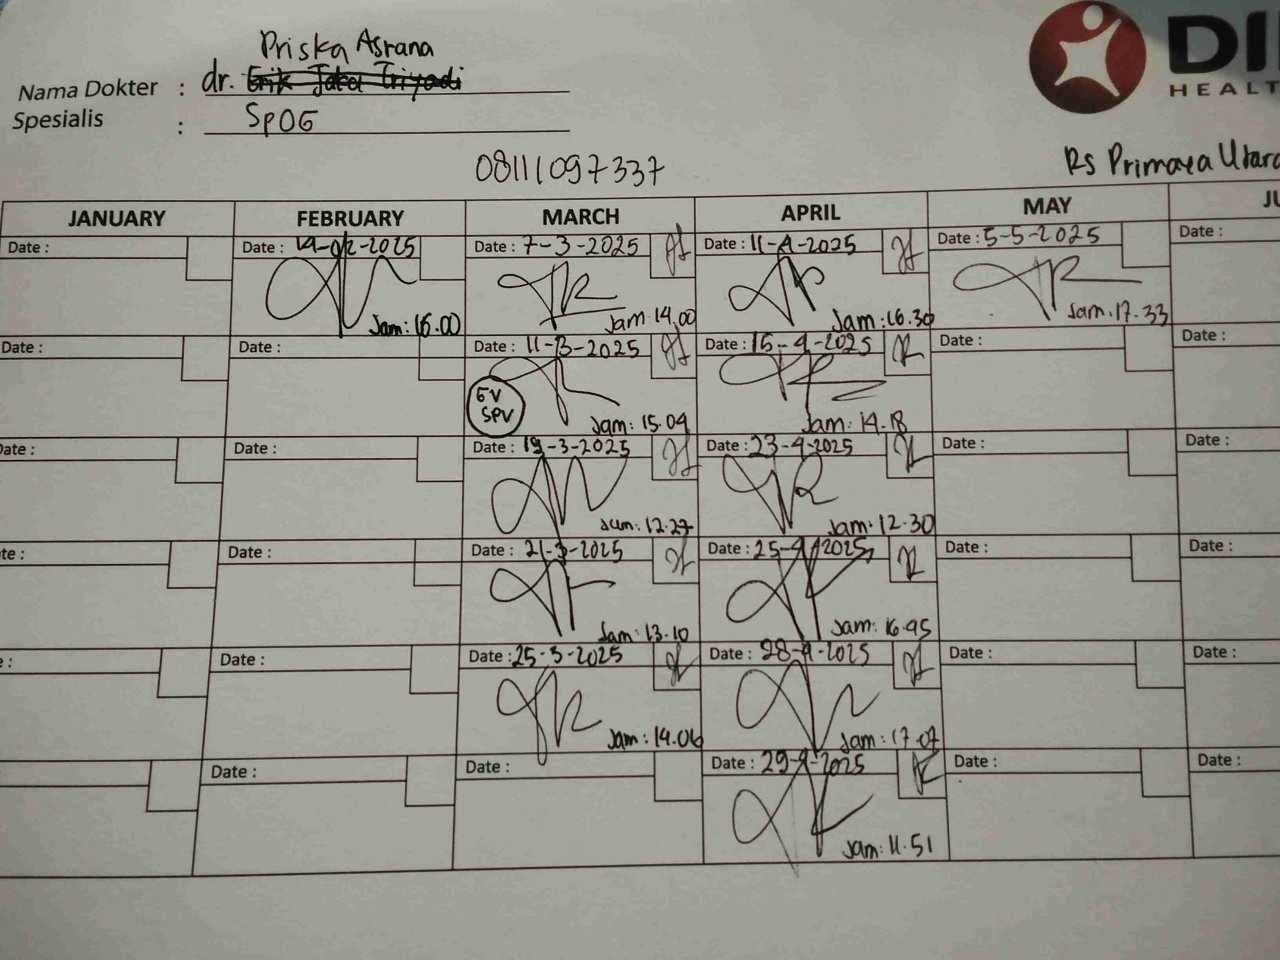 Priska Asrana
Nama Dokter : dr. Erik Jaka Triyadi
Spesialis : SpOG
DI
HEALT
08111097337
RS Primaya Utara
JANUARY FEBRUARY MARCH APRIL MAY JU
Date : Date : 19-02-2025 Date : 7-3-2025 Date : 11-4-2025 Date : 5-5-2025 Date :
Jam: 16.00 Jam 14.00 Jam: 16.30 Jam. 17.33
Date : Date : Date : 11-3-2025 Date : 15-4-2025 Date : Date :
GV
SPV
Jam: 15.04 Jam: 14.18
Date : Date : Date : 19-3-2025 Date : 23-4-2025 Date : Date :
Jam: 12.27 Jam: 12.30
te : Date : Date : 21-3-2025 Date : 25-4-2025 Date : Date :
Jam: 13.10 Jam: 16.45
: Date : Date : 25-3-2025 Date : 28-4-2025 Date : Date :
Jam: 14.06 Jam: 17.07
Date : Date : Date : 29-4-2025 Date : Date :
Jam: 11.51